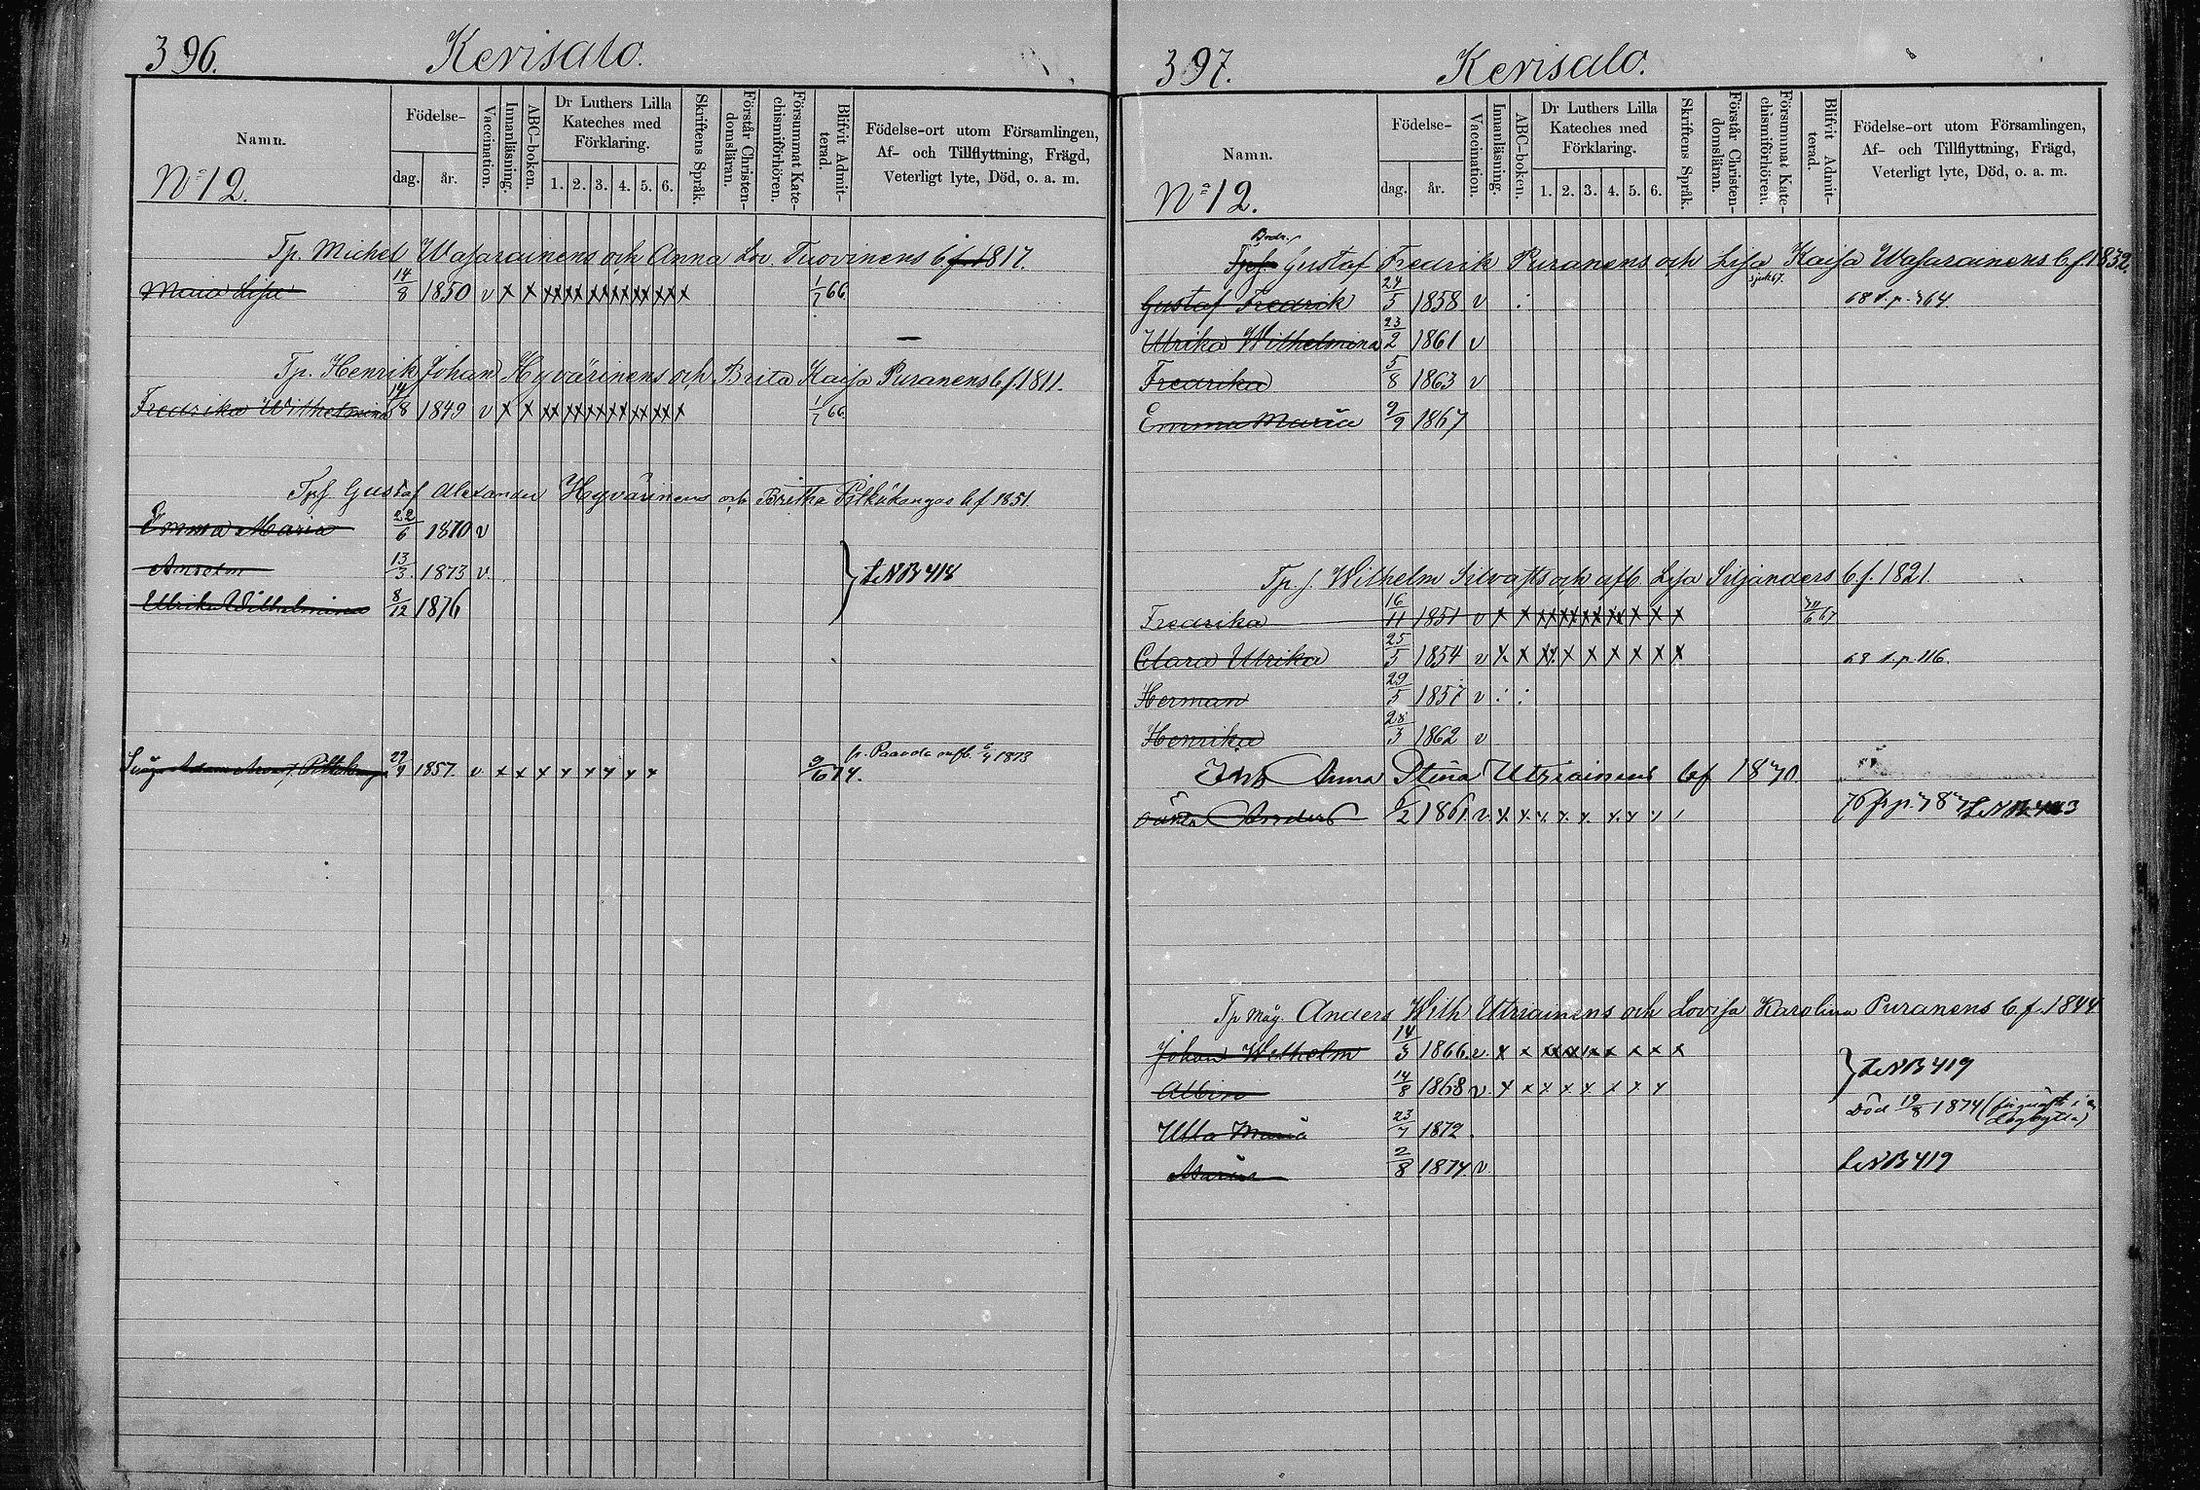 396. Kerisalo.
Namn.
Födelse-
dag. år.
Vaccination.
Innanläsning.
ABC-boken.
Dr Luthers Lilla
Kateches med
Förklaring.
1. 2. 3. 4. 5. 6.
Skriftens Språk.
Förstår Christen-
domsläran.
Försummat Kate-
chismiförhören.
Blifvit Admit-
terad.
Födelse-ort utom Församlingen,
Af- och Tillflyttning, Frägd,
Veterligt lyte, Död, o. a. m.
No 12.
Tp. Michel Wasarainens och Anna Lov. Tuovinens b f 1817.
Maria Lisa 14/8 1850 v x x xx xx xx xx xx x x 1/7 66
Tp. Henrik Johan Hyvärinens och Brita Kaisa Puranens b f. 1811.
Fredrika Wilhelmina 14/8 1849 v x x xx xx xx xx xx x x 1/7 66
Tpf Gustaf Alexander Hyvärinens och Britha Pitkäkangas b f 1851.
Emma Maria 22/6 1870 v
Anselm 13/3. 1873 v. } LNB 418
Ulrika Wilhelmina 8/12 1876
Adam 29/9 1857. v x x x x x x x x 74. fr. Paavola 1873
397. Kerisalo.
Namn.
Födelse-
dag. år.
Vaccination.
Innanläsning.
ABC-boken.
Dr Luthers Lilla
Kateches med
Förklaring.
1. 2. 3. 4. 5. 6.
Skriftens Språk.
Förstår Christen-
domsläran.
Försummat Kate-
chismiförhören.
Blifvit Admit-
terad.
Födelse-ort utom Församlingen,
Af- och Tillflyttning, Frägd,
Veterligt lyte, Död, o. a. m.
No 12.
Brdr.
Tpf Gustaf Fredrik Puranens och Lisa Kaisa Wasarainens b f 1832.
Gustaf Fredrik 24/5 1858 v : 68 t. p. 364.
Ulrika Wilhelmina 23/2 1861 v
Fredrika 5/8 1863 v
Emma Maria 9/9 1867
Tp. f. Wilhelm Silvasts och afl. Lisa Siljanders b f. 1821.
Fredrika 16/11 1851 v x x xx xx xx xx x x x 67
Clara Ulrika 25/5 1854 v x x xx x x x x x x 68 t. p. 116.
Herman 29/5 1857 v : :
Henrika 28/3 1862 v
Anna Stina Utriainens b f 1870.
Anders 1861 v x x x x x x x 76 fr p. 787
Tp Måg. Anders Wilh Utriainens och Lovisa Karolina Puranens b. f. 1844
Johan Wilhelm 14/3 1866 v. x x xx xx x x x x } LNB 419
Albin 14/8 1868 v. x x x x x x x x
Ulla Maria 23/7 1872. Död 19/8 1874
Maria 2/8 1874 v. LNB 419